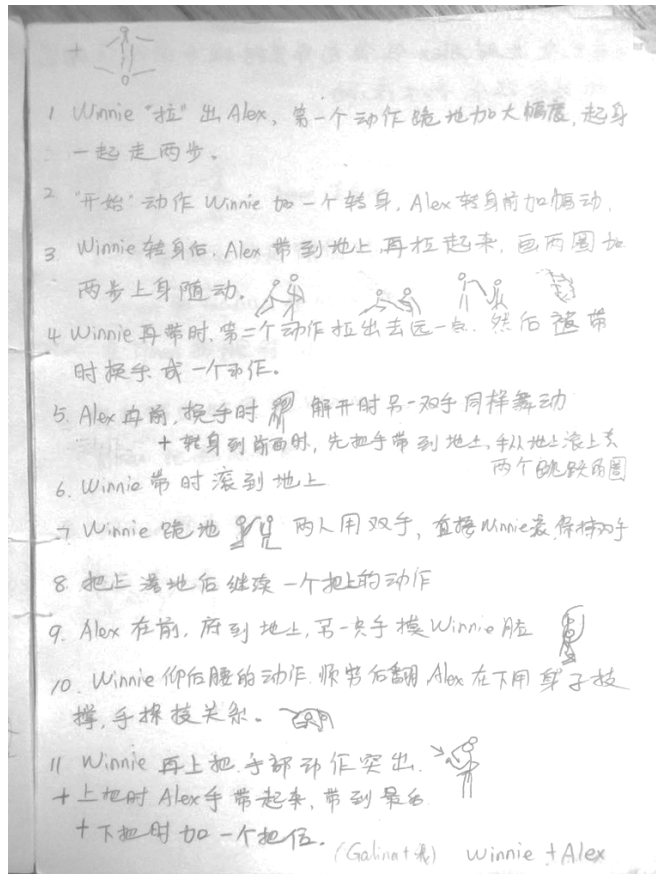 +
1 Winnie "拉"出Alex，第一个动作跪地加大幅度，起身
一起走两步。
2 "开始"动作 Winnie 加一个转身，Alex转身前加幅动，
3 Winnie转身后，Alex带到地上再拉起来，画两圈加
两步上身随动。
4 Winnie再带时，第二个动作拉出去远一点，然后被带
时换手或一个动作。
5. Alex再前，换手时 解开时另一双手同样舞动
+ 转身到前面时，先把手带到地上，手从地上滚上来
两个跳跃两圈
6. Winnie带时滚到地上
7 Winnie跪地 两人用双手，直接Winnie
8. 把上落地后继续一个把上的动作
9. Alex在前，府到地上，另一只手摸Winnie脸
10. Winnie仰后腰的动作，顺势后翻，Alex在下用身子支
撑，手接技关系。
11 Winnie再上把，手部动作突出，
+ 上把时Alex手带起来，带到最后
+ 下把时加一个把位。
(Galina+我) Winnie + Alex